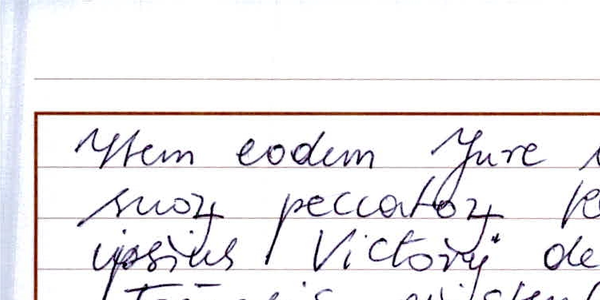 Ytem eodem Jure
suoꝝ peccatoꝝ
ipsius Victorij de